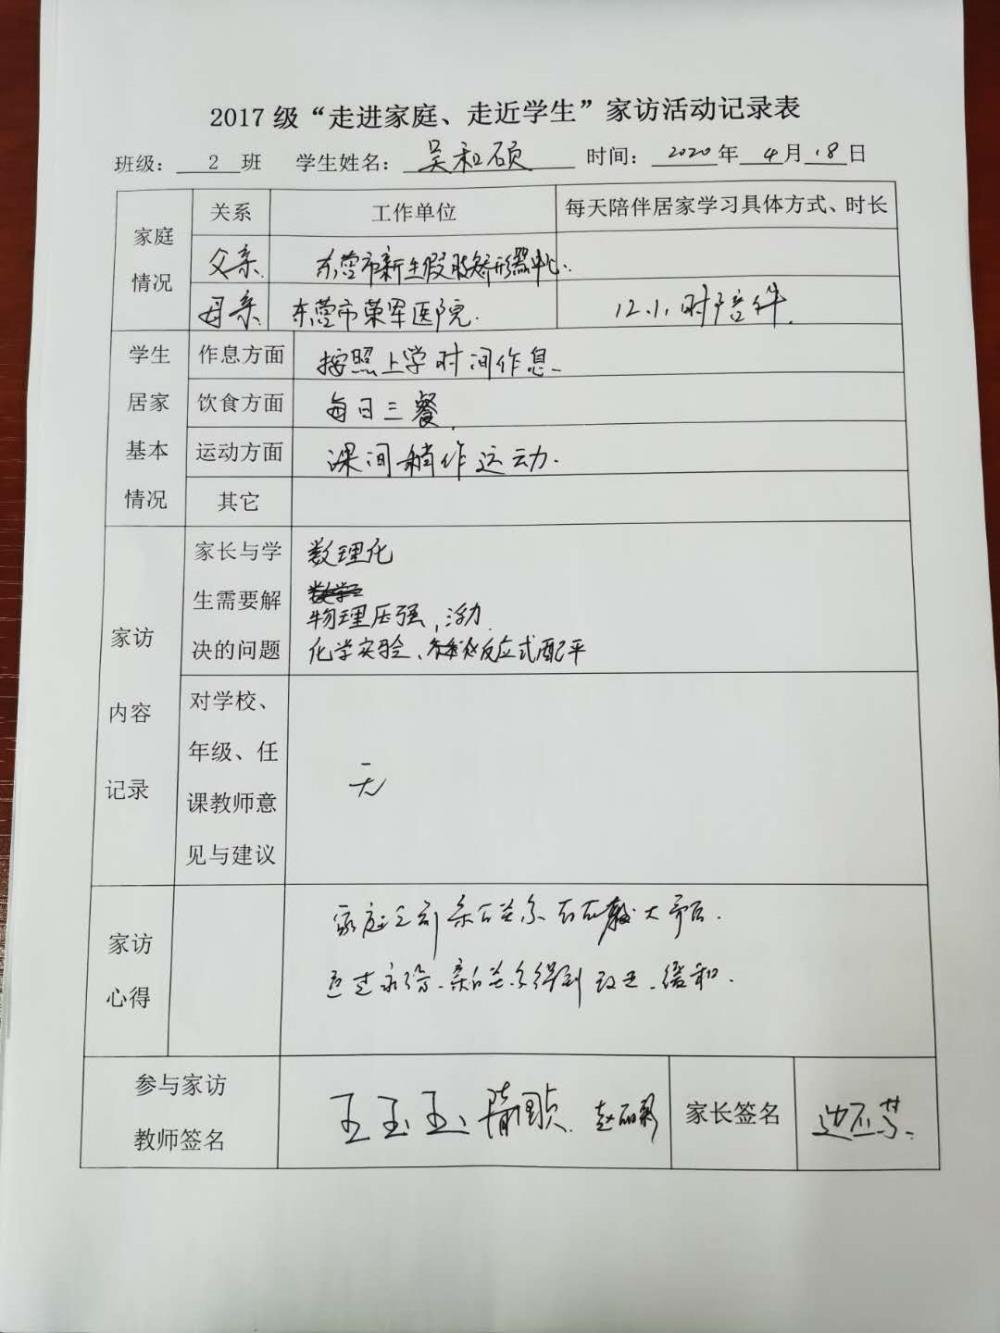 2017 级“走进家庭、走近学生”家访活动记录表
班级： 2 班 学生姓名： 吴和硕 时间： 2020 年 4 月 18 日
家庭情况
关系 工作单位 每天陪伴居家学习具体方式、时长
父亲 东营市新生假肢矫形器中心.
母亲 东营市荣军医院. 12小时陪伴.
学生居家基本情况
作息方面 按照上学时间作息.
饮食方面 每日三餐.
运动方面 课间稍作运动.
其它
家访内容记录
家长与学生需要解决的问题
数理化
物理压强,浮力
化学实验、反应式配平
对学校、年级、任课教师意见与建议
无
家访心得
家庭 关系 较大
得到改 、缓和.
参与家访教师签名
王玉玉
家长签名